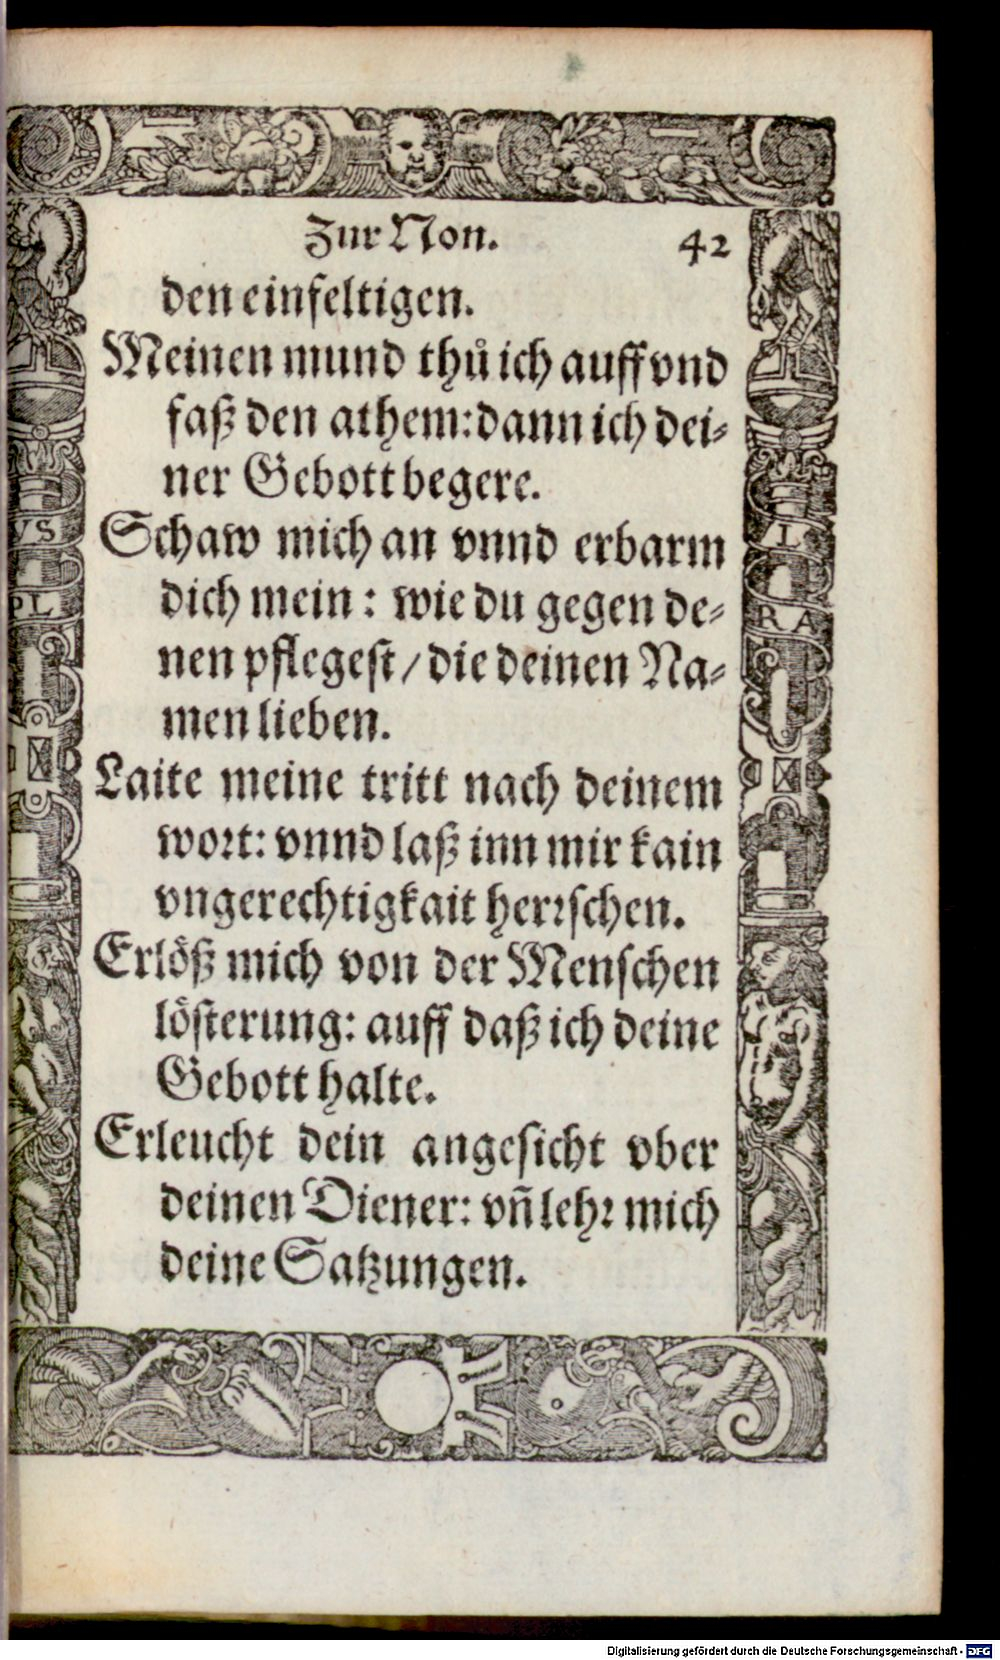 Zur Non. 42
den einfeltigen.
Meinen mund thů ich auff vnd
faß den athem: dann ich dei⸗
ner Gebott begere.
Schaw mich an vnnd erbarm
dich mein: wie du gegen de⸗
nen pflegest / die deinen Na⸗
men lieben.
Laite meine tritt nach deinem
wort: vnnd laß inn mir kain
vngerechtigkait herrschen.
Erlöß mich von der Menschen
lösterung: auff daß ich deine
Gebott halte.
Erleucht dein angesicht vber
deinen Diener: vn̄ lehr mich
deine Satzungen.
VS
PL
L
RA
Digitalisierung gefördert durch die Deutsche Forschungsgemeinschaft - DFG